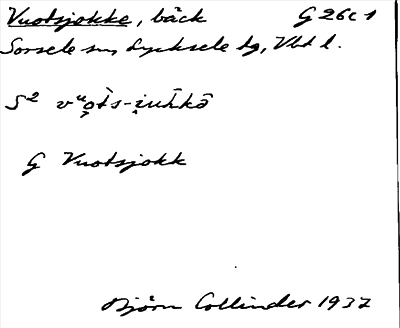 Vuotsjokke, bäck G 26c1
Sorsele sn, Lycksele tg, Vbt l.
S2
G Vuotsjokk
Björn Collinder 1937